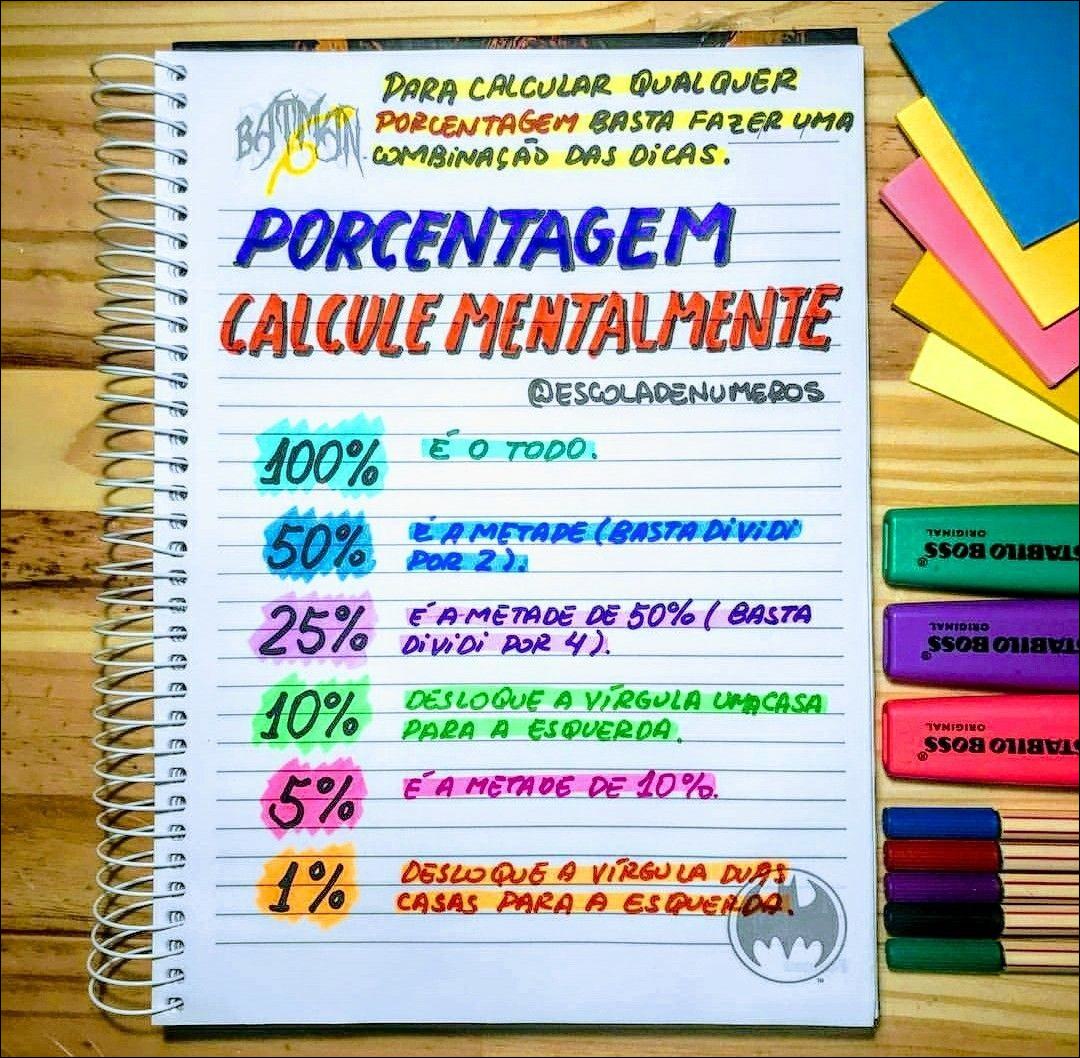 PARA CALCULAR QUALQUER
PORCENTAGEM BASTA FAZER UMA
COMBINAÇÃO DAS DICAS.
BATMAN
PORCENTAGEM
CALCULE MENTALMENTE
@ESCOLADENUMEROS
100% É O TODO.
50% É A METADE (BASTA DIVIDI
POR 2).
25% É A METADE DE 50% (BASTA
DIVIDI POR 4).
10% DESLOQUE A VÍRGULA UMA CASA
PARA A ESQUERDA.
5% É A METADE DE 10%.
1% DESLOQUE A VÍRGULA DUAS
CASAS PARA A ESQUERDA.
TM
STABILO BOSS®
ORIGINAL
STABILO BOSS®
ORIGINAL
STABILO BOSS®
ORIGINAL